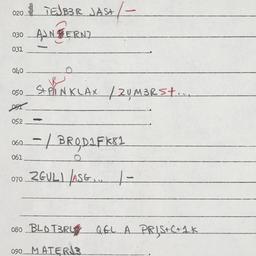 020 TEJB3R JAS+/—
030 AJN ERN7
031 —
040
050 S+PINKLAX /ZYM3RS+...
051
052 —
060 —/ BRQD1FK81
061
070 ZGULI /ASG... /—
080 BLDT3RL QGL A PRJS+C+1K
090 MATERJ3